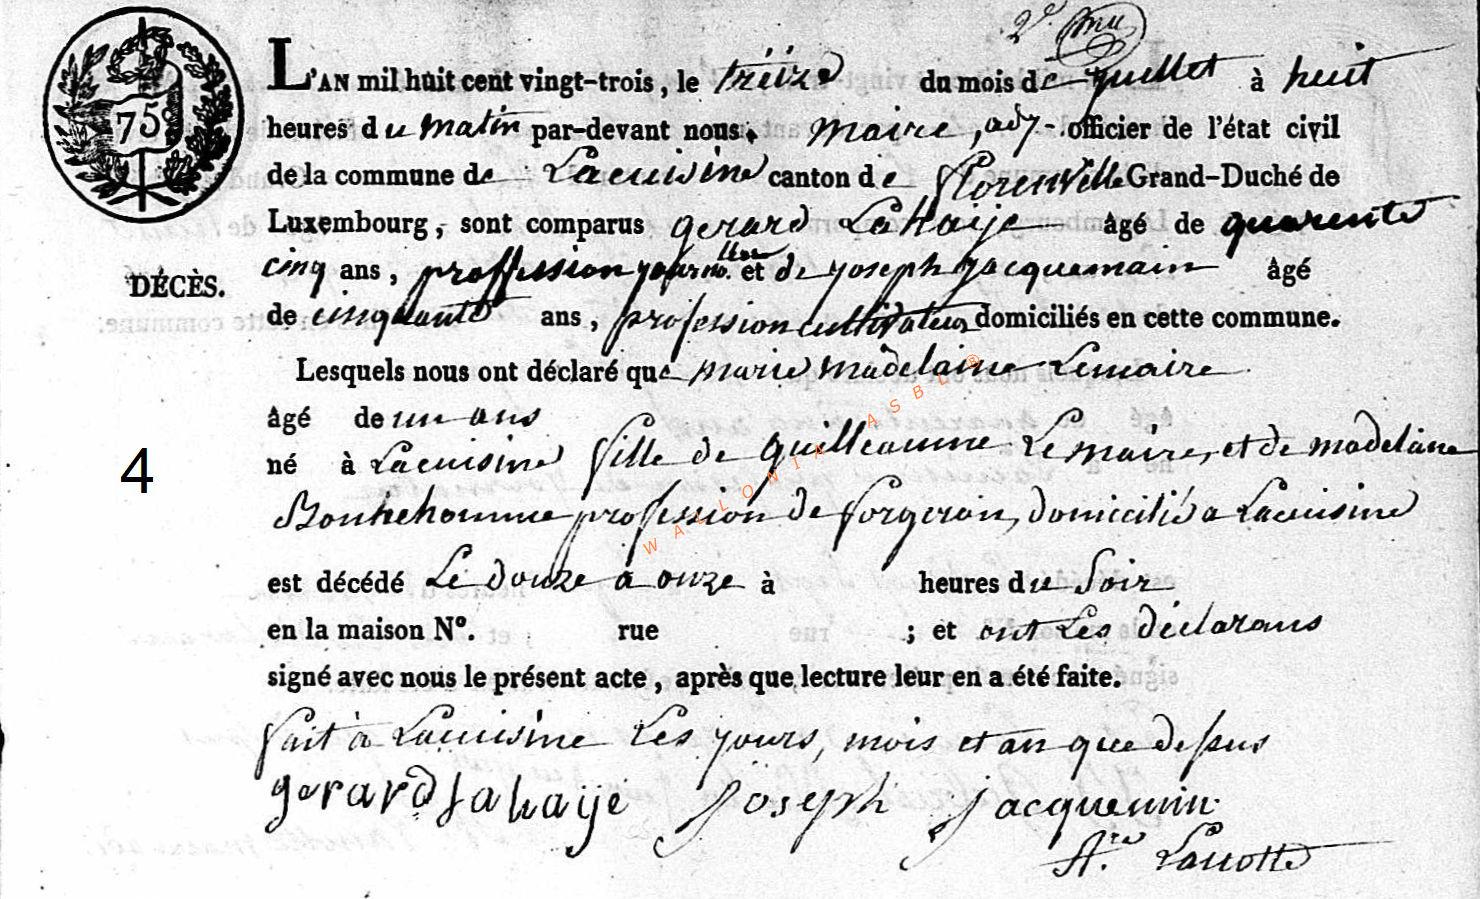 75
2e.
L'AN mil huit cent vingt-trois, le treize du mois de juillet à huit
heures du matin par-devant nous, maire, adj- officier de l'état civil
de la commune de Lacuisine canton de florenville Grand-Duché de
Luxembourg, sont comparus gerard Lahaije âgé de quarente
cinq ans, proffession journo. llier et de joseph jacquemain âgé
DÉCÈS.
de cinquante ans, profession cultivateur domiciliés en cette commune.
Lesquels nous ont déclaré que marie madelaine Lemaire
âgé de un ans
4
né à Lacuisine fille de guilleaume Le maire, et de madelaine
Bonhehomme profession de forgeron, domicilié a Lacuisine
est décédé Le douze a onze à heures du Soir
en la maison N°. rue ; et ont Les déclarans
signé avec nous le présent acte, après que lecture leur en a été faite.
fait à Lacuisine Les jours, mois et an que dessus
gerard Lahaije joseph jacquemin
Lanotte
WALLONIA ASBL ®